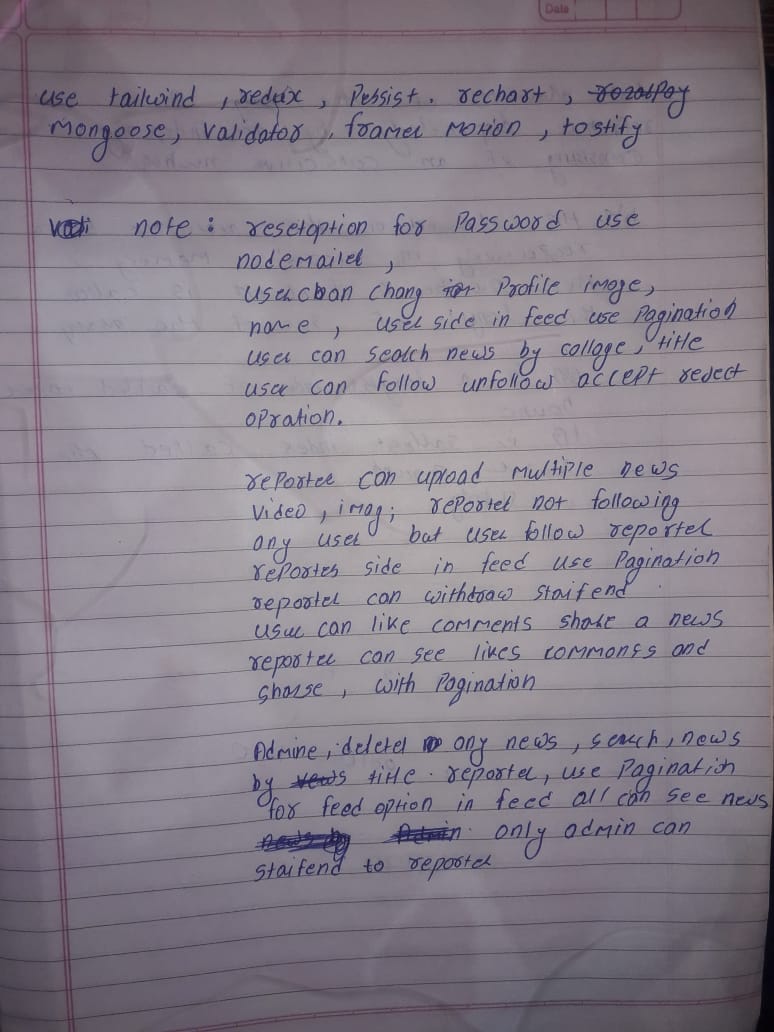 Date
use tailwind , redux , Pessist . rechart , rozorpay
Mongoose, validator , framel Motion , tostify
note : resetoption for Password use
nodemailel ,
user can chang Profile imoge,
name , usel side in feed use Pagination
usel can seolch news by collage, title
user can follow unfollow accept reject
opration.
reportee can upload multiple news
video , imag; reportel not following
any usel but usel follow reportel
reportes side in feed use Pagination
reportel can withdraw staifend
usue can like comments shate a news
reportee can see likes commonts and
sharse , with Pagination
Admine, deletel any news , seuch , news
by news title . reportel, use Pagination
for feed option in feed all can see news
news by Admin . only admin can
staifend to reportel